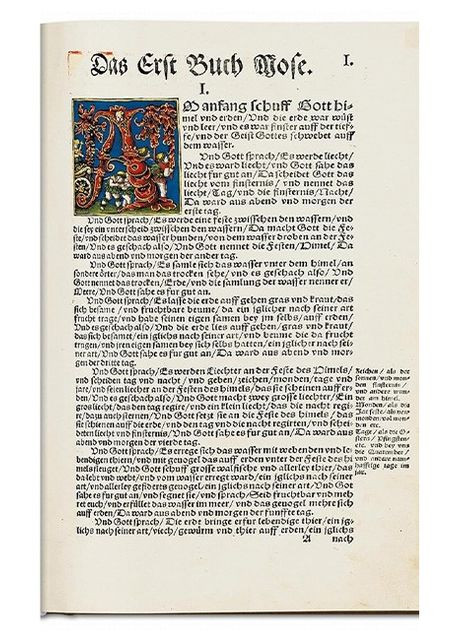 Das Erst Buch Mose.
I.
I.
M anfang schuff Gott hi=
mel vnd erden/Vnd die erde war wüst
vnd leer/vnd es war finster auff der tief=
fe/vnd der Geist Gottes schwebet auff
dem wasser.
Vnd Gott sprach/Es werde liecht/
Vnd es ward liecht/vnd Gott sahe das
liecht fur gut an/Da scheidet Gott das
liecht vom finsternis/vnd nennet das
liecht/Tag/vnd die finsternis/Nacht/
Da ward aus abend vnd morgen der
erste tag.
Vnd Gott sprach/Es werde eine feste zwisschen den wassern/vnd
die sey ein vnterscheid zwisschen den wassern/Da macht Gott die Fe=
ste/vnd scheidet das wasser hunden/von dem wasser droben an der Fe=
sten/Vnd es geschach also/Vnd Gott nennet die Festen/Himel/Da
ward aus abend vnd morgen der ander tag.
Vnd Gott sprach/Es samle sich das wasser vnter dem himel/an
sondere örter/das man das trocken sehe/vnd es geschach also/Vnd
Gott nennet das trocken/Erde/vnd die samlung der wasser nennet er/
Meere/Vnd Gott sahe es fur gut an.
Vnd Gott sprach/Es lasse die erde auff gehen gras vnd kraut/das
sich besame/vnd fruchtbare beume/da ein iglicher nach seiner art
frucht trage/vnd habe seinen eigen samen bey jm selbs/auff erden/
Vnd es geschach also/Vnd die erde lies auff gehen/gras vnd kraut/
das sich besamet/ein iglichs nach seiner art/vnd beume die da frucht
trugen/vnd jren eigen samen bey sich selbs hatten/ein iglicher nach sei=
ner art/Vnd Gott sahe es fur gut an/Da ward aus abend vnd mor=
gen der dritte tag.
Vnd Gott sprach/Es werden Liechter an der Feste des Himels/
vnd scheiden tag vnd nacht/vnd geben/zeichen/monden/tage vnd
jare/vnd seien liechter an der Festen des himels/das sie scheinen auff er=
den/Vnd es geschach also/Vnd Gott macht zwey grosse liechter/Ein
gros liecht/das den tag regire/vnd ein klein liecht/das die nacht regi=
re/dazu auch sternen/Vnd Gott setzt sie an die Feste des himels/das
sie schienen auff die erde/vnd den tag vnd die nacht regirten/vnd schei=
deten liecht vnd finsternis/Vnd Gott sahe es fur gut an/Da ward aus
abend vnd morgen der vierde tag.
Vnd Gott sprach/Es errege sich das wasser mit webenden vnd le=
bendigen thieren/vnd mit geuogel das auff erden vnter der Feste des hi=
mels fleuget/Vnd Gott schuff grosse walfissche vnd allerley thier/das
da lebt vnd webt/vnd vom wasser erreget ward/ein iglichs nach seiner
art/vnd allerley gefiderts geuogel/ein iglichs nach seiner art/Vnd Got
sahe es fur gut an/vnd segnet sie/vnd sprach/Seid fruchtbar vnd meh
ret euch/vnd erfüllet das wasser im meer/vnd das geuogel mehre sich
auff erden/Da ward aus abend vnd morgen der funffte tag.
Vnd Gott sprach/Die erde bringe erfur lebendige thier/ein jg=
lichs nach seiner art/viech/gewürm vnd thier auff erden/ein iglichs
A nach
Zeichen/als der
sonnen/vnd mon=
den finsternis/
vnd andere wun=
der am himel.
Monden/als die